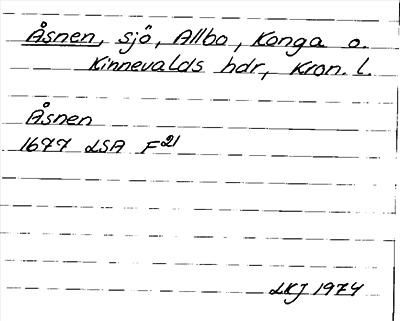 Åsnen, sjö, Allbo, Konga o.
Kinnevalds hdr, Kron. l.
Åsnen
1677 LSA F21
LKJ 1974